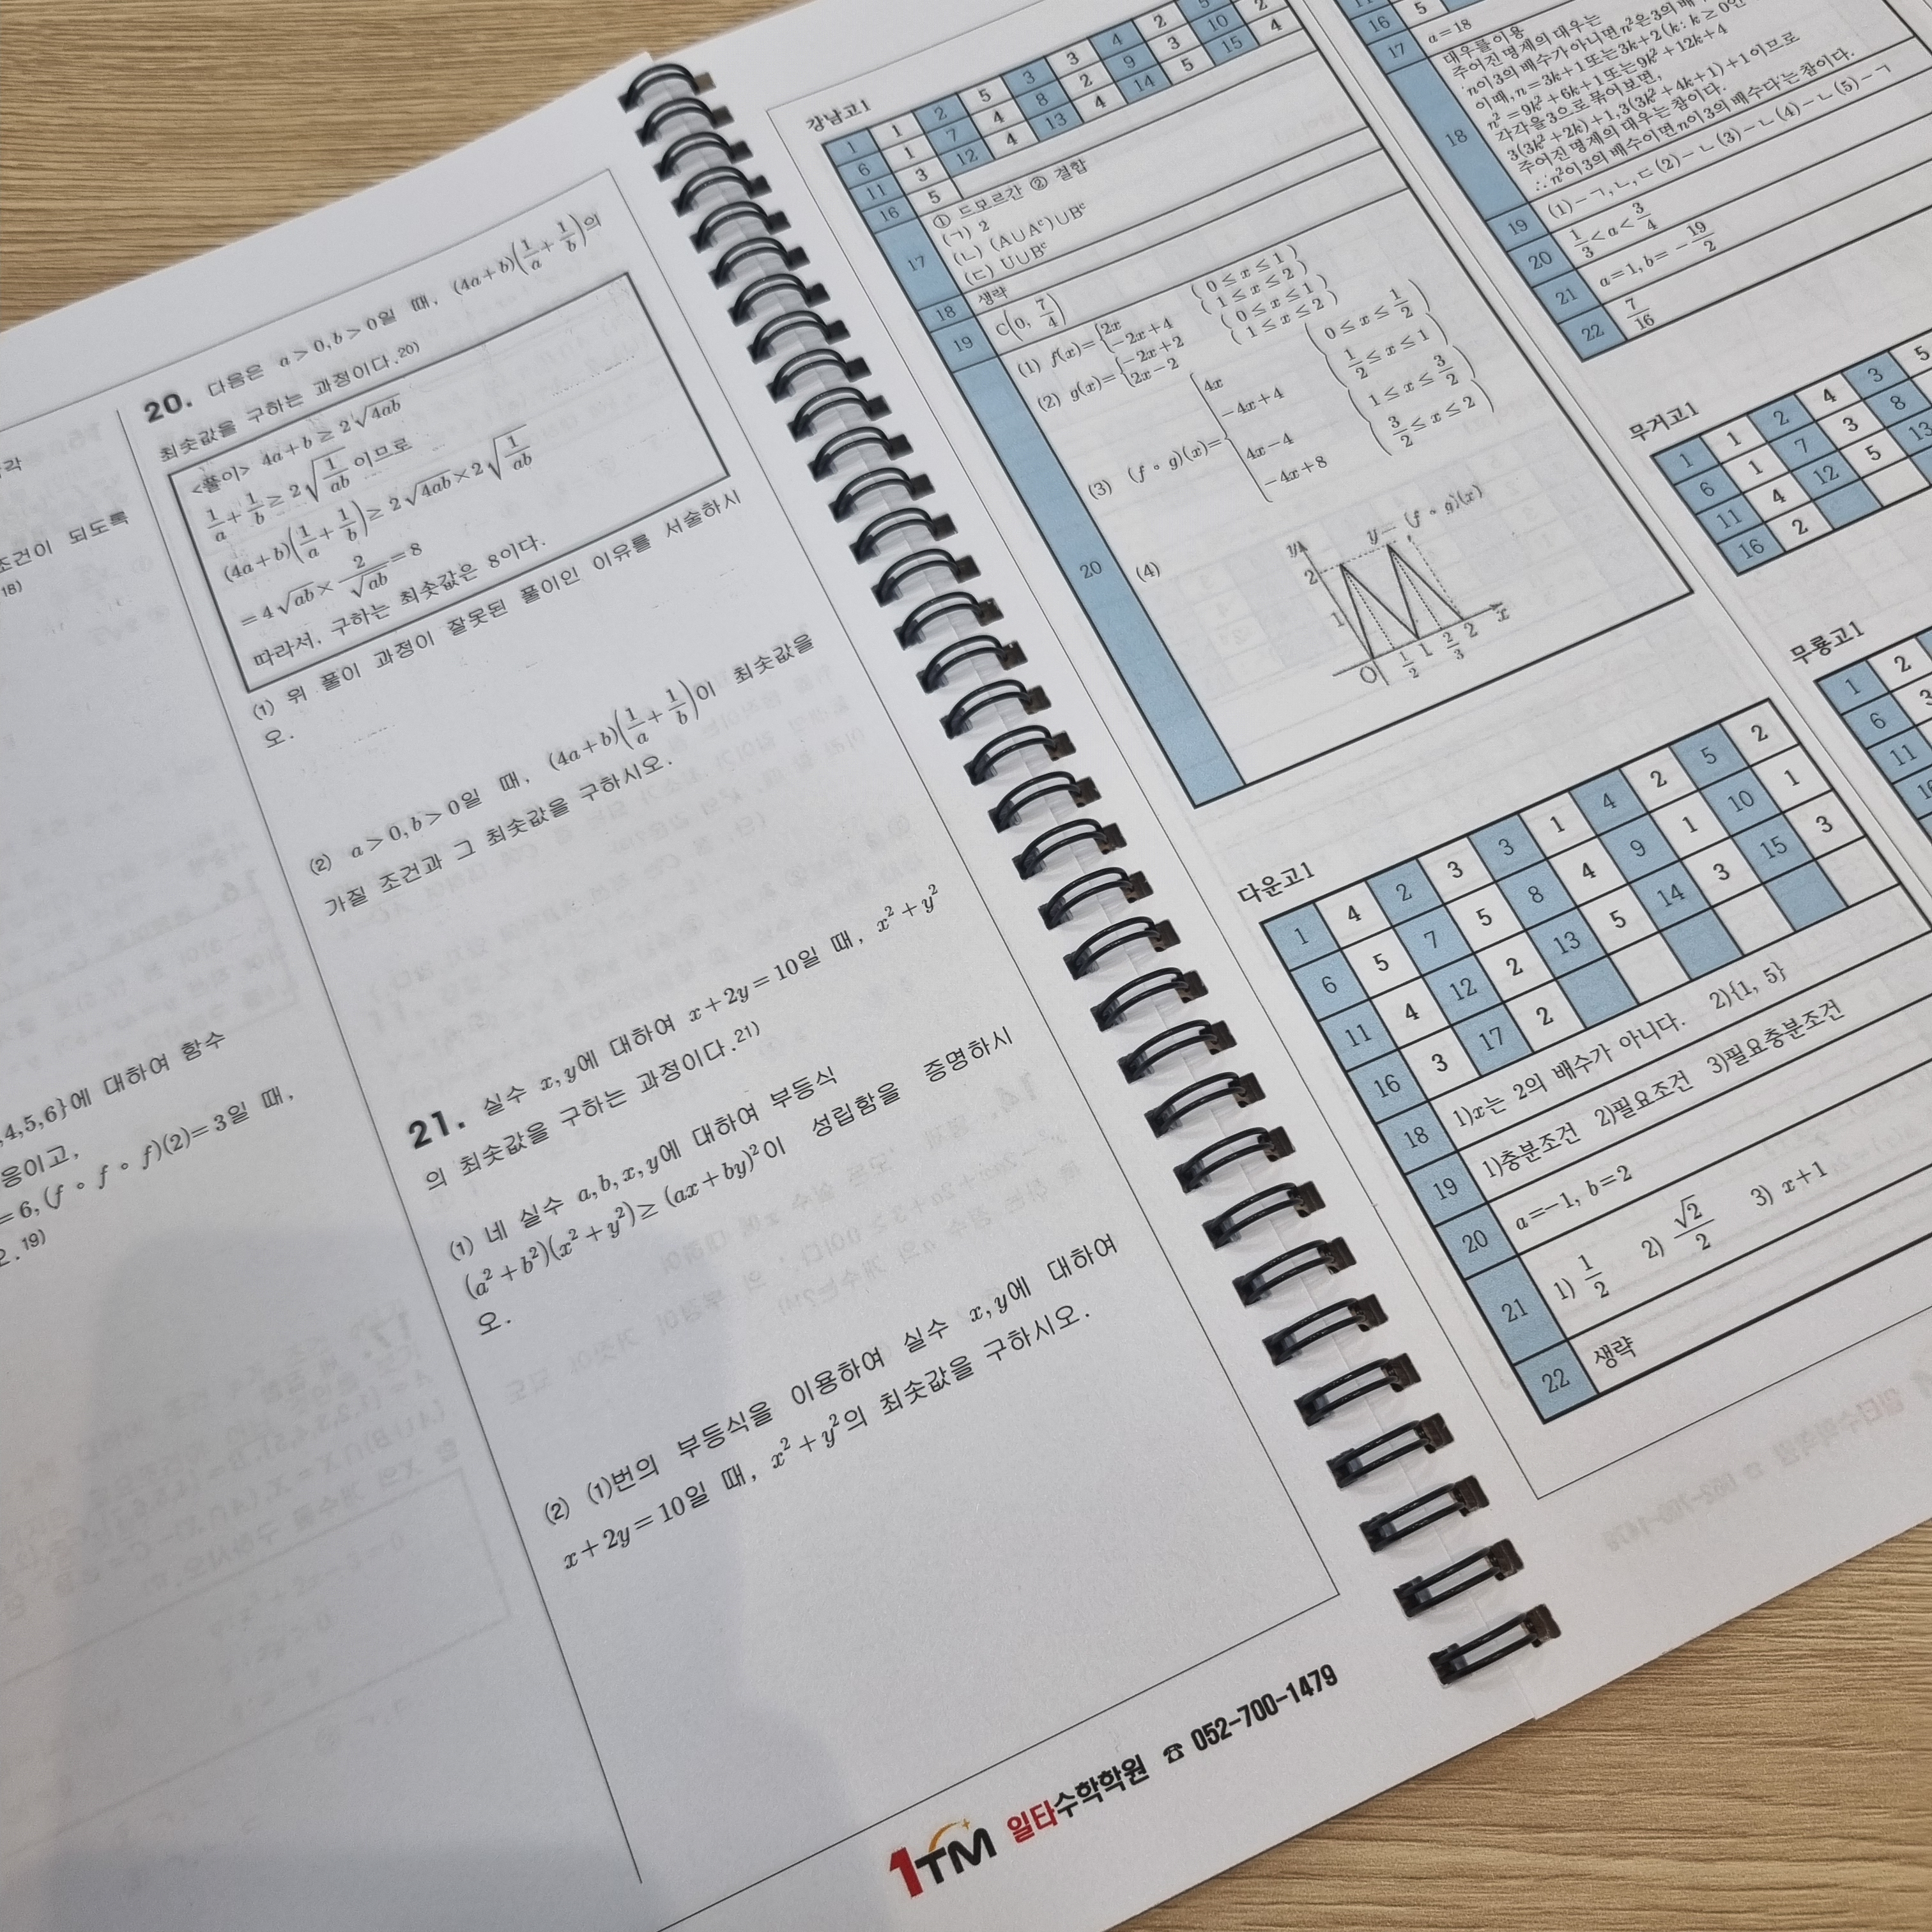 각
조건이 되도록
18)
,4,5,6}에 대하여 함수
응이고,
=6, (f∘f)(2)=3일 때,
오.19)
20. 다음은 a>0, b>0일 때, (4a+b)(1/a+1/b)의
최솟값을 구하는 과정이다.20)
<풀이> 4a+b≥2√4ab
1/a+1/b≥2√(1/ab) 이므로
(4a+b)(1/a+1/b)≥2√4ab×2√(1/ab)
=4√ab×2/√ab=8
따라서, 구하는 최솟값은 8이다.
(1) 위 풀이 과정이 잘못된 풀이인 이유를 서술하시
오.
(2) a>0, b>0일 때, (4a+b)(1/a+1/b)이 최솟값을
가질 조건과 그 최솟값을 구하시오.
21. 실수 x, y에 대하여 x+2y=10일 때, x²+y²
의 최솟값을 구하는 과정이다.21)
(1) 네 실수 a, b, x, y에 대하여 부등식
(a²+b²)(x²+y²)≥(ax+by)²이 성립함을 증명하시
오.
(2) (1)번의 부등식을 이용하여 실수 x, y에 대하여
x+2y=10일 때, x²+y²의 최솟값을 구하시오.
1TM 일타수학학원 ☎ 052-700-1479
강남고1
1 1 2 5 3 3 4 2 5
6 1 7 4 8 2 9 3 10 2
11 3 12 4 13 4 14 5 15 4
16 5
17 ① 드모르간 ② 결합
(ㄱ) 2
(ㄴ) (A∪Aᶜ)∪Bᶜ
(ㄷ) U∪Bᶜ
18 생략
19 C(0, 7/4)
20 (1) f(x)={2x (0≤x≤1)
−2x+4 (1≤x≤2)
(2) g(x)={−2x+2 (0≤x≤1)
2x−2 (1≤x≤2)
(3) (f∘g)(x)={4x (0≤x≤1/2)
−4x+4 (1/2≤x≤1)
4x−4 (1≤x≤3/2)
−4x+8 (3/2≤x≤2)
(4)
y y=(f∘g)(x)
2
1
O 1/2 1 2/3 2 x
다운고1
1 4 2 3 3 1 4 2 5 2
6 5 7 5 8 4 9 1 10 1
11 4 12 2 13 5 14 3 15 3
16 3 17 2
18 1)x는 2의 배수가 아니다. 2){1, 5}
19 1)충분조건 2)필요조건 3)필요충분조건
20 a=−1, b=2
21 1) 1/2 2) √2/2 3) x+1
22 생략
16 5
17 a=18
18 대우를 이용
주어진 명제의 대우는
'n이 3의 배수가 아니면 n²은 3의 배
이때, n=3k+1 또는 3k+2 (k: k≥0인
n²=9k²+6k+1 또는 9k²+12k+4
각각을 3으로 묶어보면,
3(3k²+2k)+1, 3(3k²+4k+1)+1이므로
주어진 명제의 대우는 참이다.
∴ n²이 3의 배수이면 n이 3의 배수다'는 참이다.
19 (1)−ㄱ,ㄴ,ㄷ (2)−ㄴ (3)−ㄴ (4)−ㄴ (5)−ㄱ
20 1/3<a<3/4
21 a=1, b=−19/2
22 7/16
무거고1
1 1 2 4 3 5
6 1 7 3 8
11 4 12 5 13
16 2
무룡고1
1 2
6 3
11